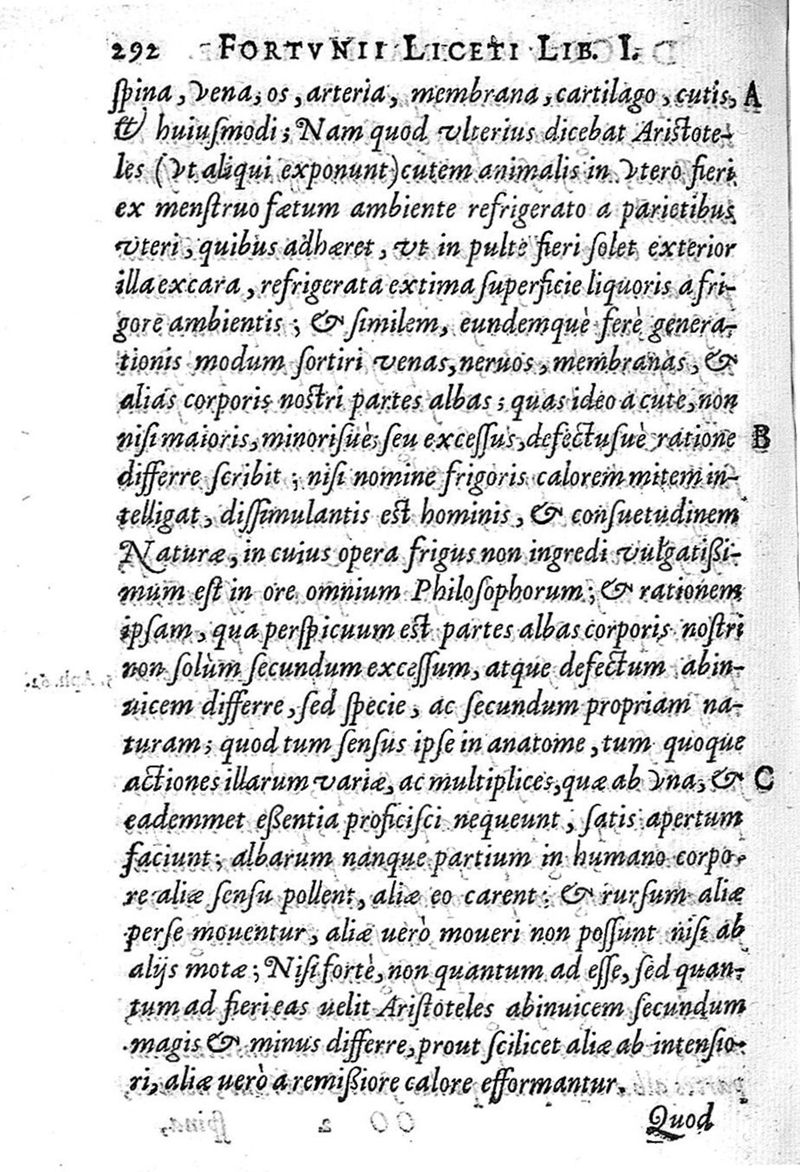 292 FORTVNII LICETI LIB. I.
ſpina, Vena, os, arteria, membrana, cartilago, cutis, A
& huiuſmodi; Nam quod vlterius dicebat Ariſtote-
les (Vt aliqui exponunt) cutem animalis in Vtero fieri
ex menſtruo fætum ambiente refrigerato a parietibus
vteri, quibus adhæret, vt in pulte fieri ſolet exterior
illa excara, refrigerata extima ſuperficie liquoris a fri-
gore ambientis; & ſimilem, eundemquè ferè genera-
tionis modum ſortiri venas, neruos, membranas, &
alias corporis noſtri partes albas; quas ideo a cute, non
niſi maioris, minoriſuè; ſeu exceſſus, defectuſuè ratione B
differre ſcribit; niſi nomine frigoris calorem mitem in-
telligat, diſſimulantis eſt hominis, & conſuetudinem
Naturæ, in cuius opera frigus non ingredi vulgatißi-
mum eſt in ore omnium Philoſophorum; & rationem
ipſam, qua perſpicuum eſt partes albas corporis noſtri
non ſolùm ſecundum exceſſum, atque defectum abin-
uicem differre, ſed ſpecie, ac ſecundum propriam na-
turam; quod tum ſenſus ipſe in anatome, tum quoque
actiones illarum variæ, ac multiplices, quæ ab Vna, & C
eademmet eßentia proficiſci nequeunt, ſatis apertum
faciunt; albarum nanque partium in humano corpo-
re aliæ ſenſu pollent, aliæ eo carent: & rurſum aliæ
perſe mouentur, aliæ uerò moueri non poſſunt niſi ab
alijs motæ; Niſi fortè, non quantum ad eſſe, ſed quan-
tum ad fieri eas uelit Ariſtoteles abinuicem ſecundum
magis & minus differre, prout ſcilicet aliæ ab intenſio-
ri, aliæ uerò a remißiore calore efformantur.
Quod